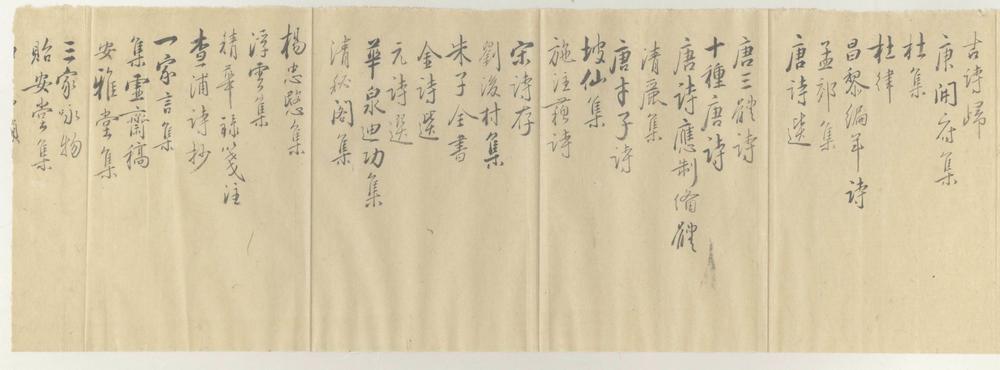 古诗歸
庾開府集
杜集
杜律
昌黎編年诗
孟郊集
唐诗选
唐三體诗
十種唐诗
唐诗應制備體
清麗集
唐才子诗
坡仙集
施注蘓诗
宋诗存
劉後村集
朱子全書
金诗选
元诗選
華泉迪功集
清閟阁集
楊忠愍集
浮雲集
精華録箋注
查浦诗抄
一家言集
集虚齋稿
安雅堂集
三家咏物
貽安堂集